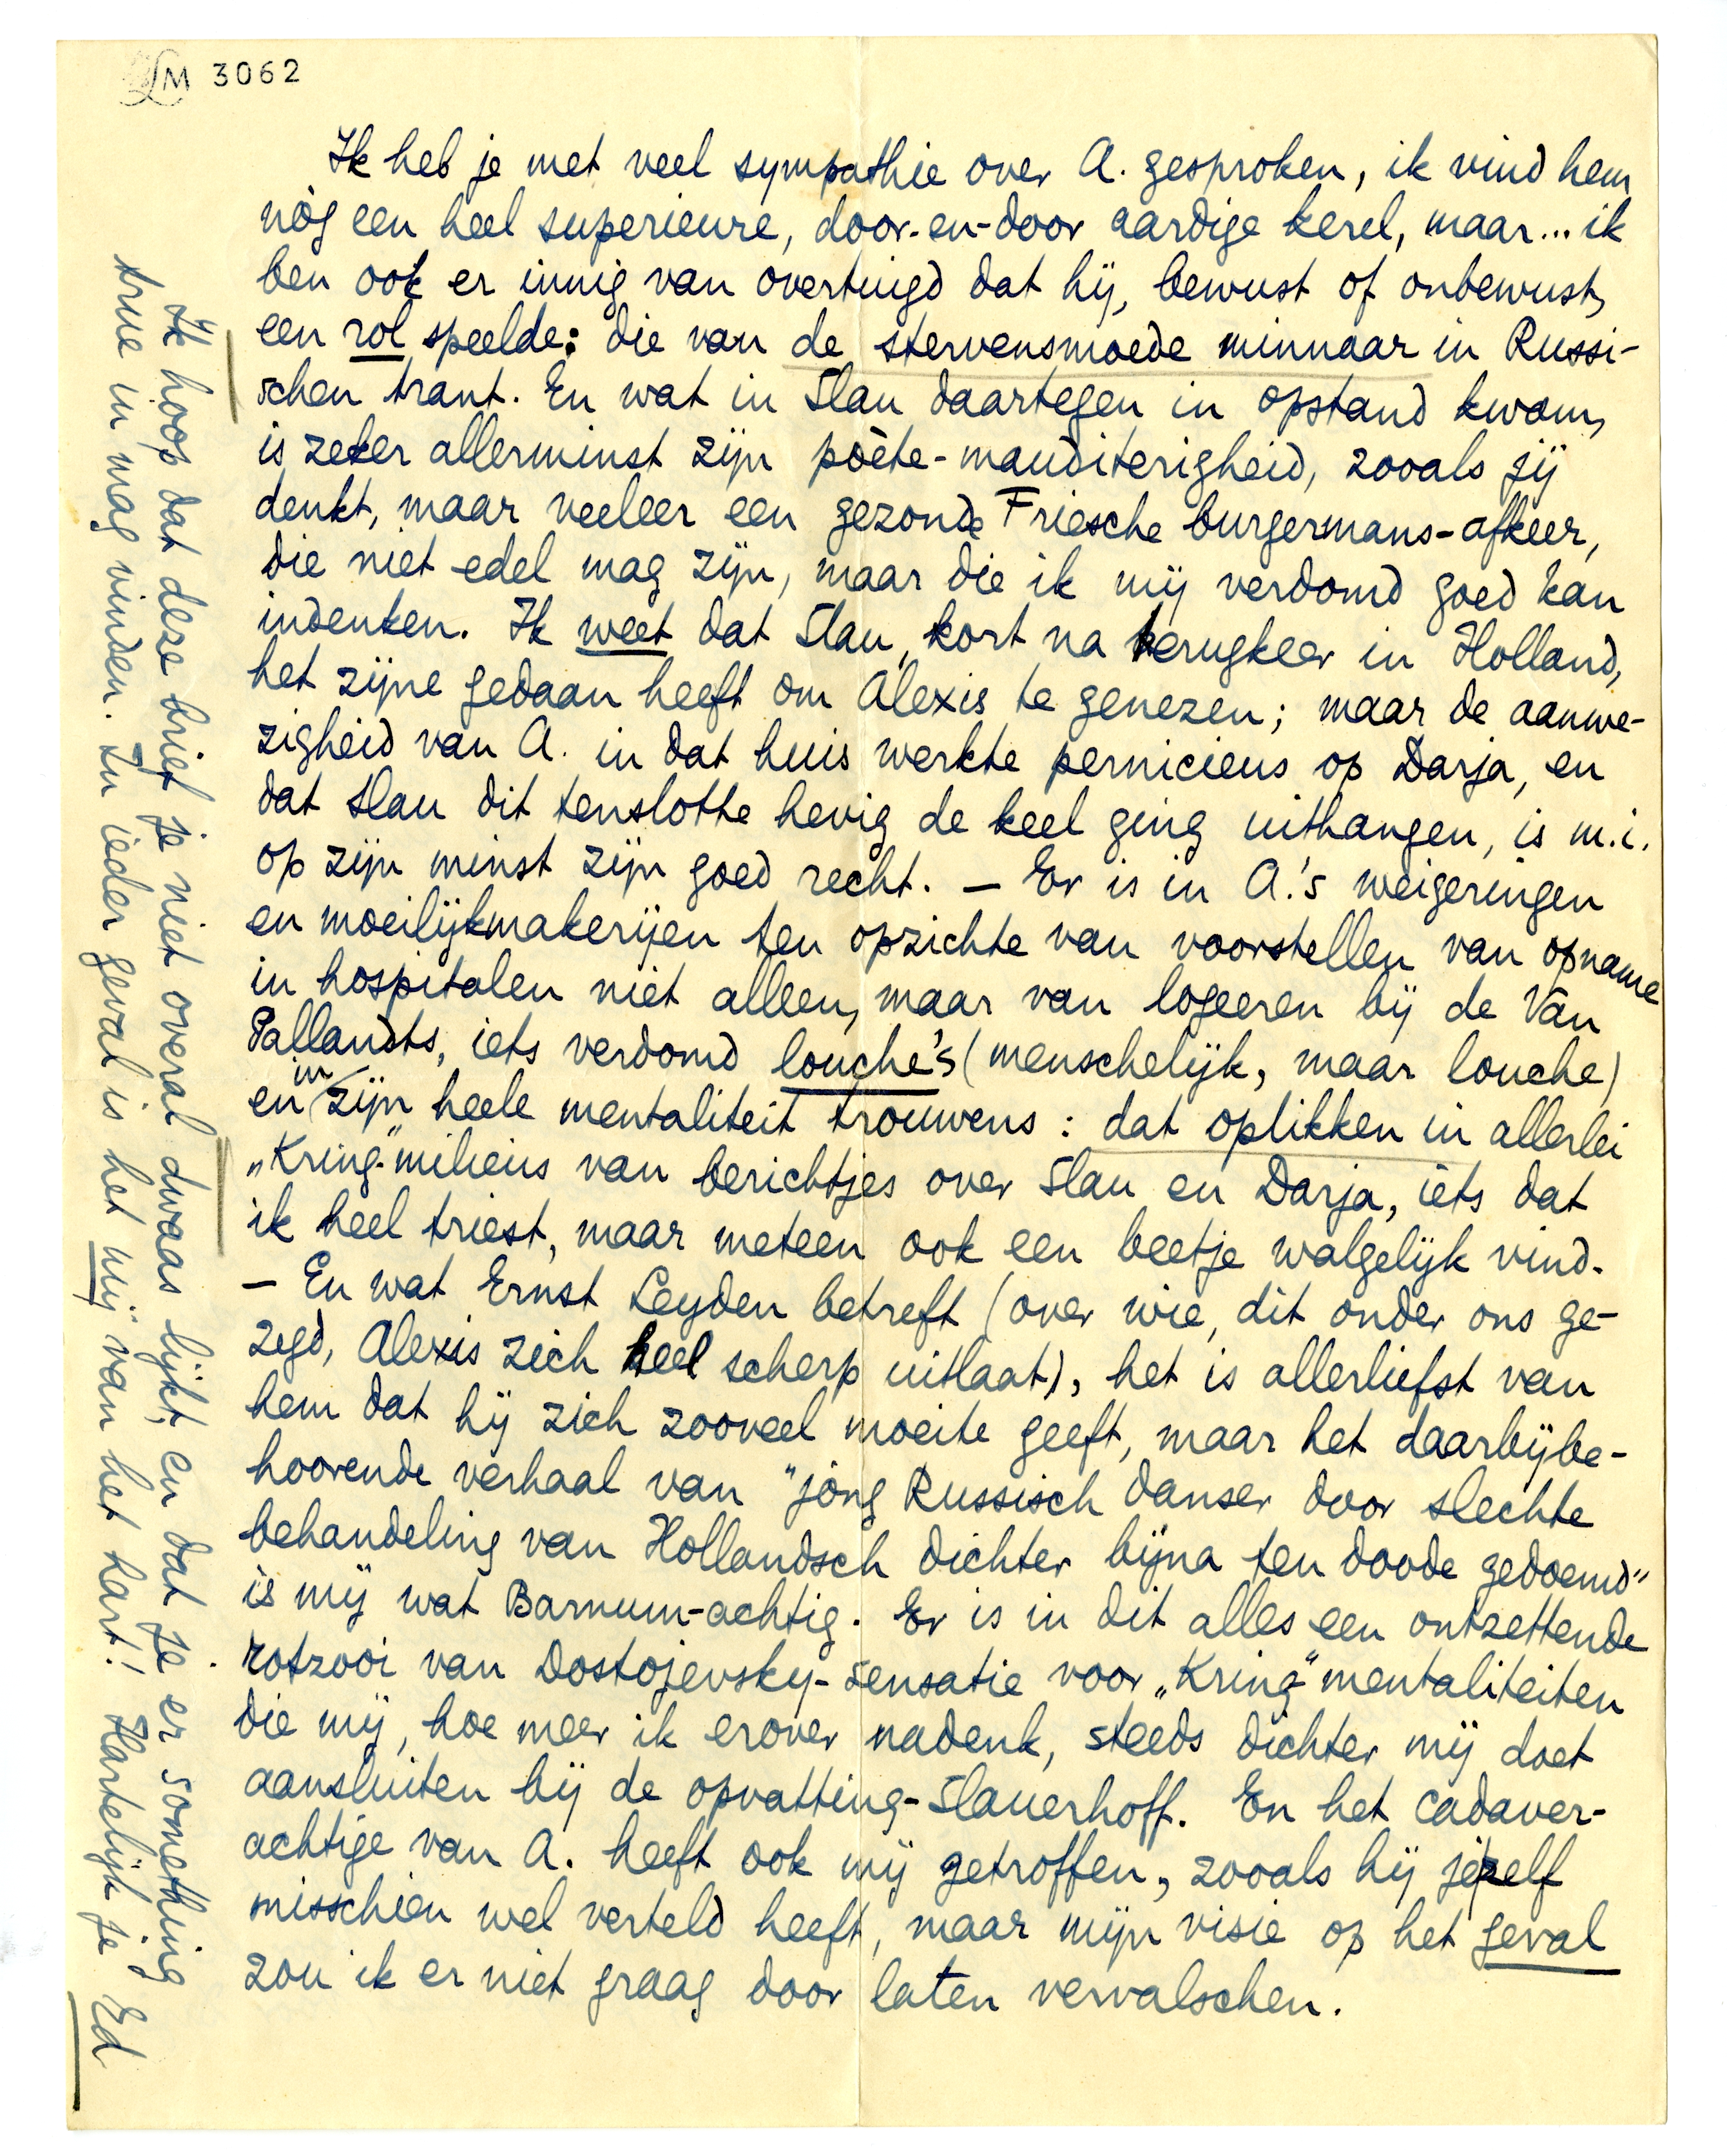 LM 3062
Ik heb je met veel sympathie over A. gesproken, ik vind hem
nòg een heel superieure, door-en-door aardige kerel, maar... ik
ben ook er innig van overtuigd dat hij, bewust of onbewust,
een rol speelde: die van de stervensmoede minnaar in Russi-
schen trant. En wat in Slau daartegen in opstand kwam,
is zeker allerminst zijn poète-mauditerigheid, zooals jij
denkt, maar veeleer een gezonde Friesche burgermans-afkeer,
die niet edel mag zijn, maar die ik mij verdomd goed kan
indenken. Ik weet dat Slau, kort na terugkeer in Holland,
het zijne gedaan heeft om Alexis te genezen; maar de aanwe-
zigheid van A. in dat huis werkte pernicieus op Darja, en
dat Slau dit tenslotte hevig de keel ging uithangen, is m.i.
op zijn minst zijn goed recht. — Er is in A.'s weigeringen
en moeilijkmakerijen ten opzichte van voorstellen van opname
in hospitalen niet alleen, maar van logeeren bij de Van
Pallandts, iets verdomd louche's (menschelijk, maar louche)
en in zijn heele mentaliteit trouwens: dat oplikken in allerlei
„Kring"-milieus van berichtjes over Slau en Darja, iets dat
ik heel triest, maar meteen ook een beetje walgelijk vind.
— En wat Ernst Leyden betreft (over wie, dit onder ons ge-
zegd, Alexis zich heel scherp uitlaat), het is allerliefst van
hem dat hij zich zooveel moeite geeft, maar het daarbijbe-
hoorende verhaal van "jong Russisch danser door slechte
behandeling van Hollandsch dichter bijna ten doode gedoemd"
is mij wat Barnum-achtig. Er is in dit alles een ontzettende
rotzooi van Dostojevsky-sensatie voor „Kring"-mentaliteiten
die mij, hoe meer ik erover nadenk, steeds dichter mij doet
aansluiten bij de opvatting-Slauerhoff. En het cadaver-
achtige van A. heeft ook mij getroffen, zooals hij jezelf
misschien wel verteld heeft, maar mijn visie op het geval
zou ik er niet graag door laten vervalschen.
Ik hoop dat deze brief je niet overal dwaas lijkt, en dat je er something
true in mag vinden. In ieder geval is het mij van het hart! Hartelijk je Ed